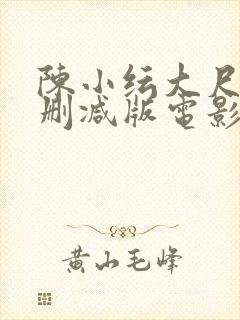 陳小纭大尺
删減版電影
黄山毛峰